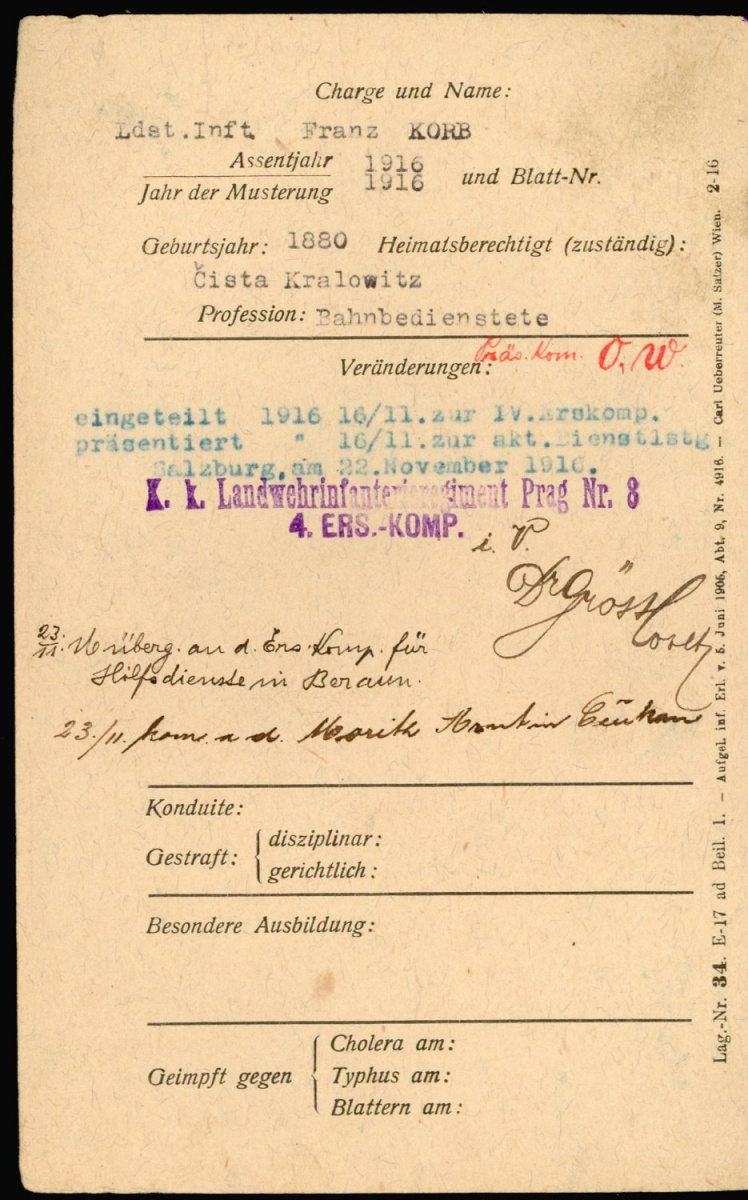 Charge und Name:
Ldst.Inft. Franz KORB
Assentjahr 1916
Jahr der Musterung 1916 und Blatt-Nr.
Geburtsjahr: 1880 Heimatsberechtigt (zuständig):
Čista Kralowitz
Profession: Bahnbedienstete
Präs. Kom. O, W.
Veränderungen:
eingeteilt 1916 16/11.zur IV.Erskomp.
präsentiert " 16/11.zur akt.Dienstlstg
Salzburg,am 22.November 1916.
K. k. Landwehrinfanterieregiment Prag Nr. 8
4. ERS.-KOMP.
i. V.
23./11. überg. an d. Ers. Komp. für
Hilfsdienste in Beraun.
23./11. kom. a. d.
Konduite:
Gestraft: disziplinar:
gerichtlich:
Besondere Ausbildung:
Geimpft gegen Cholera am:
Typhus am:
Blattern am:
Lag.-Nr. 34. E-17 ad Beil. 1. — Aufgel. inf. Erl. v. 5. Juni 1906, Abt. 9, Nr. 4916. — Carl Ueberreuter (M. Salzer) Wien. 2-16